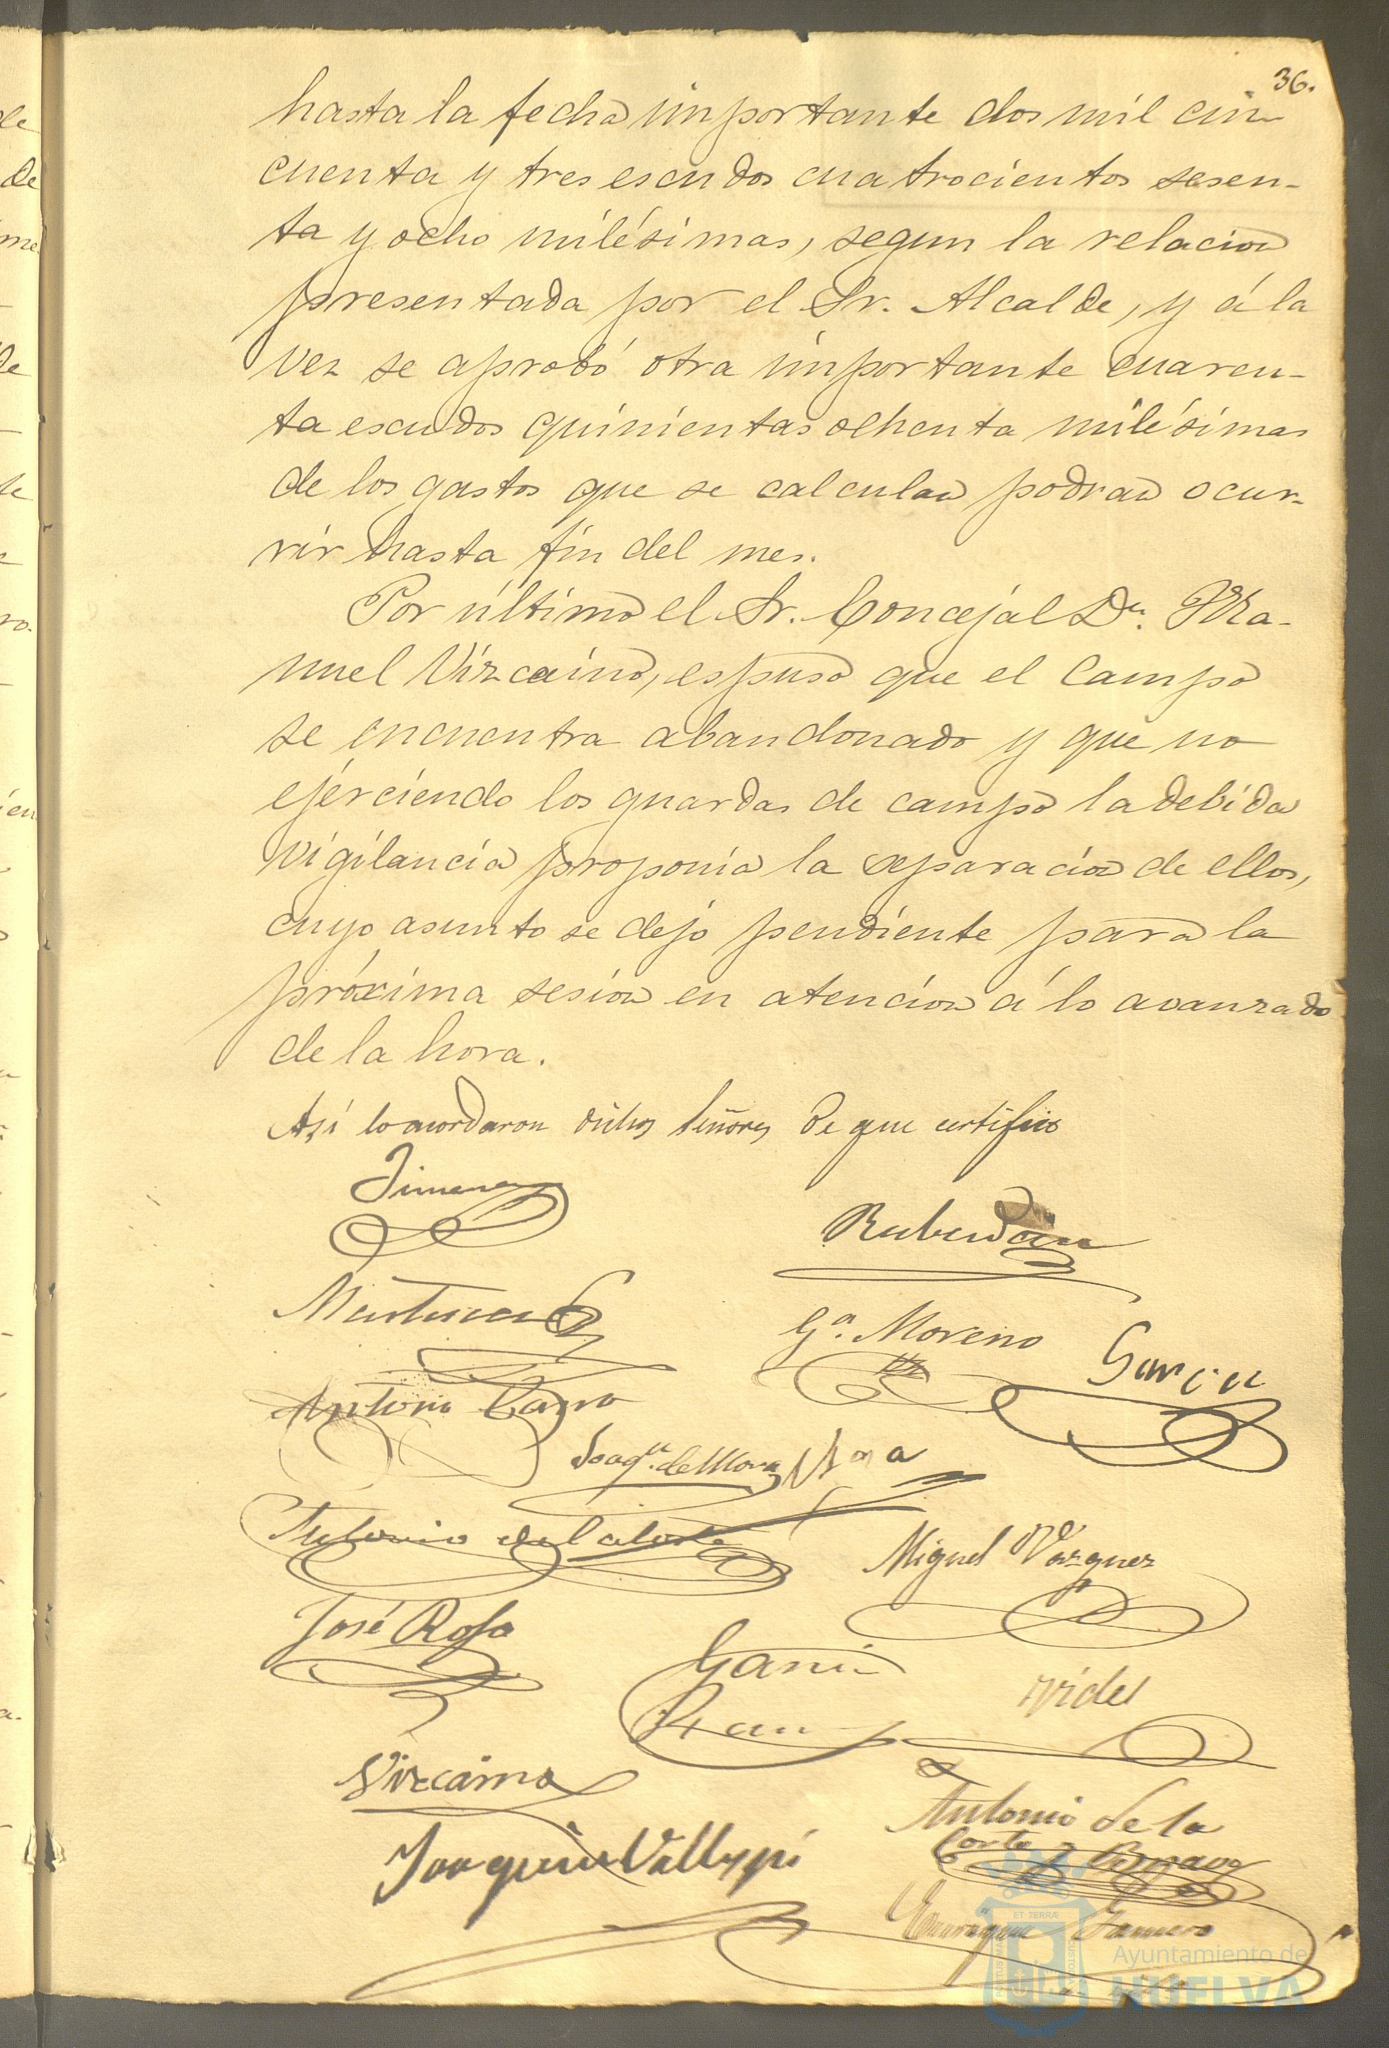 36.
hasta la fecha importante dos mil cin-
cuenta y tres escudos cuatrocientos sesen-
ta y ocho milésimas, segun la relacion
presentada por el Sr. Alcalde, y á la
vez se aprobó otra importante cuaren-
ta escudos quinientas ochenta milésimas
de los gastos que se calculan podran ocur-
rir hasta fin del mes.
Por último el Sr. Concejal Dn. Ma-
nuel Vizcaino, espuso que el campo
se encuentra abandonado y que no
ejerciendo los guardas de campo la debida
vigilancia proponia la separacion de ellos,
cuyo asunto se dejó pendiente para la
próxima sesion en atencion á lo avanzado
de la hora.
Así lo acordaron dichos Señores de que certifico
Jimenez
Ruberdau
Martinez
Ga. Moreno
Garcia
Antonio
Joaqn. de Mora
Antonio de la Corte
Miguel Vazquez
José Rofa
Garcia
Vides
Vizcaino
Antonio de la
Corte y Bravo
Joaquin
Ayuntamiento de
HUELVA